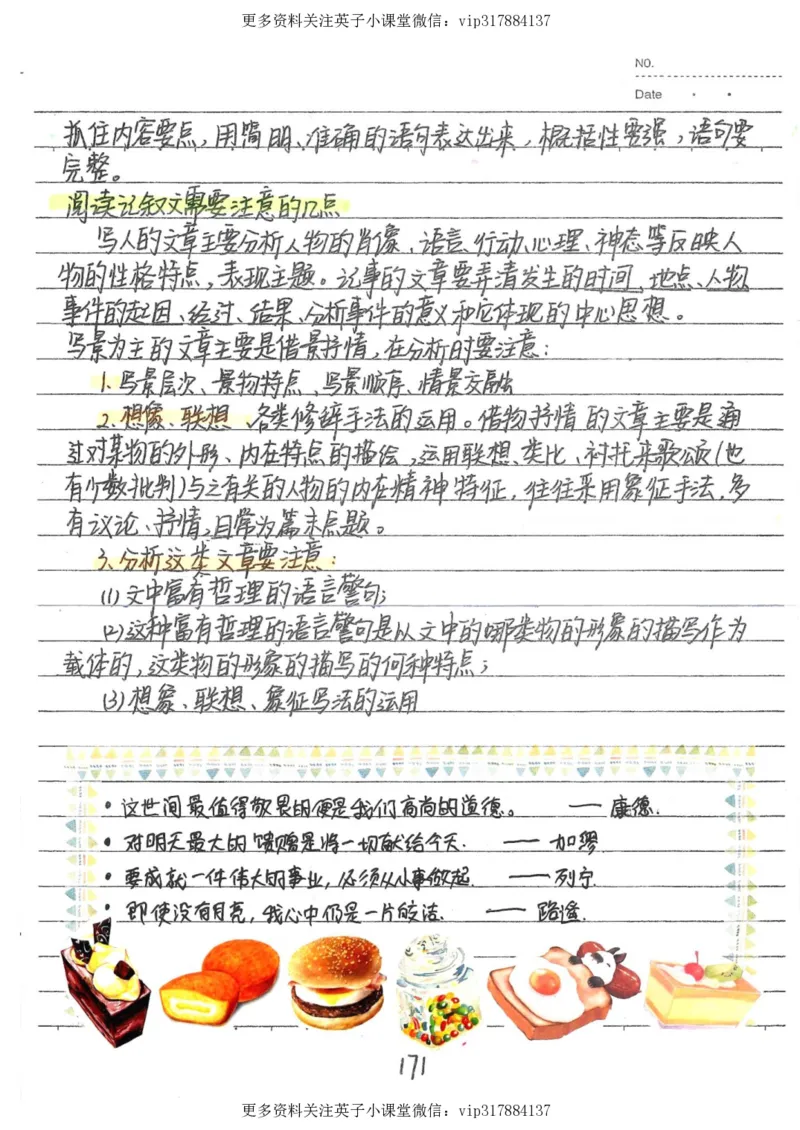 更多资料关注英子小课堂微信：vip317884137
NO.
Date
抓住内容要点，用简明、准确的语句表达出来，概括性要强，语句要
完整。
阅读记叙文需要注意的几点
写人的文章主要分析人物的肖像、语言、行动、心理、神态等反映人
物的性格特点，表现主题。记事的文章要弄清发生的时间、地点、人物、
事件的起因、经过、结果、分析事件的意义和它体现的中心思想。
写景为主的文章主要是借景抒情，在分析时要注意：
1、写景层次、景物特点、写景顺序、情景交融
2、想像、联想、各类修辞手法的运用。借物抒情的文章主要是通
过对某物的外形、内在特点的描绘，运用联想、类比、衬托来歌颂（也
有少数批判）与之有关的人物的内在精神特征，往往采用象征手法，多
有议论、抒情，且常为篇末点题。
3、分析这类文章要注意：
(1)文中富有哲理的语言警句；
(2)这种富有哲理的语言警句是从文中的哪类物的形象的描写作为
载体的，这类物的形象的描写的何种特点；
(3)想象、联想、象征写法的运用
• 这世间最值得敬畏的便是我们高尚的道德。 —— 康德.
• 对明天最大的馈赠是将一切献给今天. —— 加缪
• 要成就一件伟大的事业，必须从小事做起. —— 列宁.
• 即使没有月亮，我心中仍是一片皎洁. —— 路遥.
171
更多资料关注英子小课堂微信：vip317884137